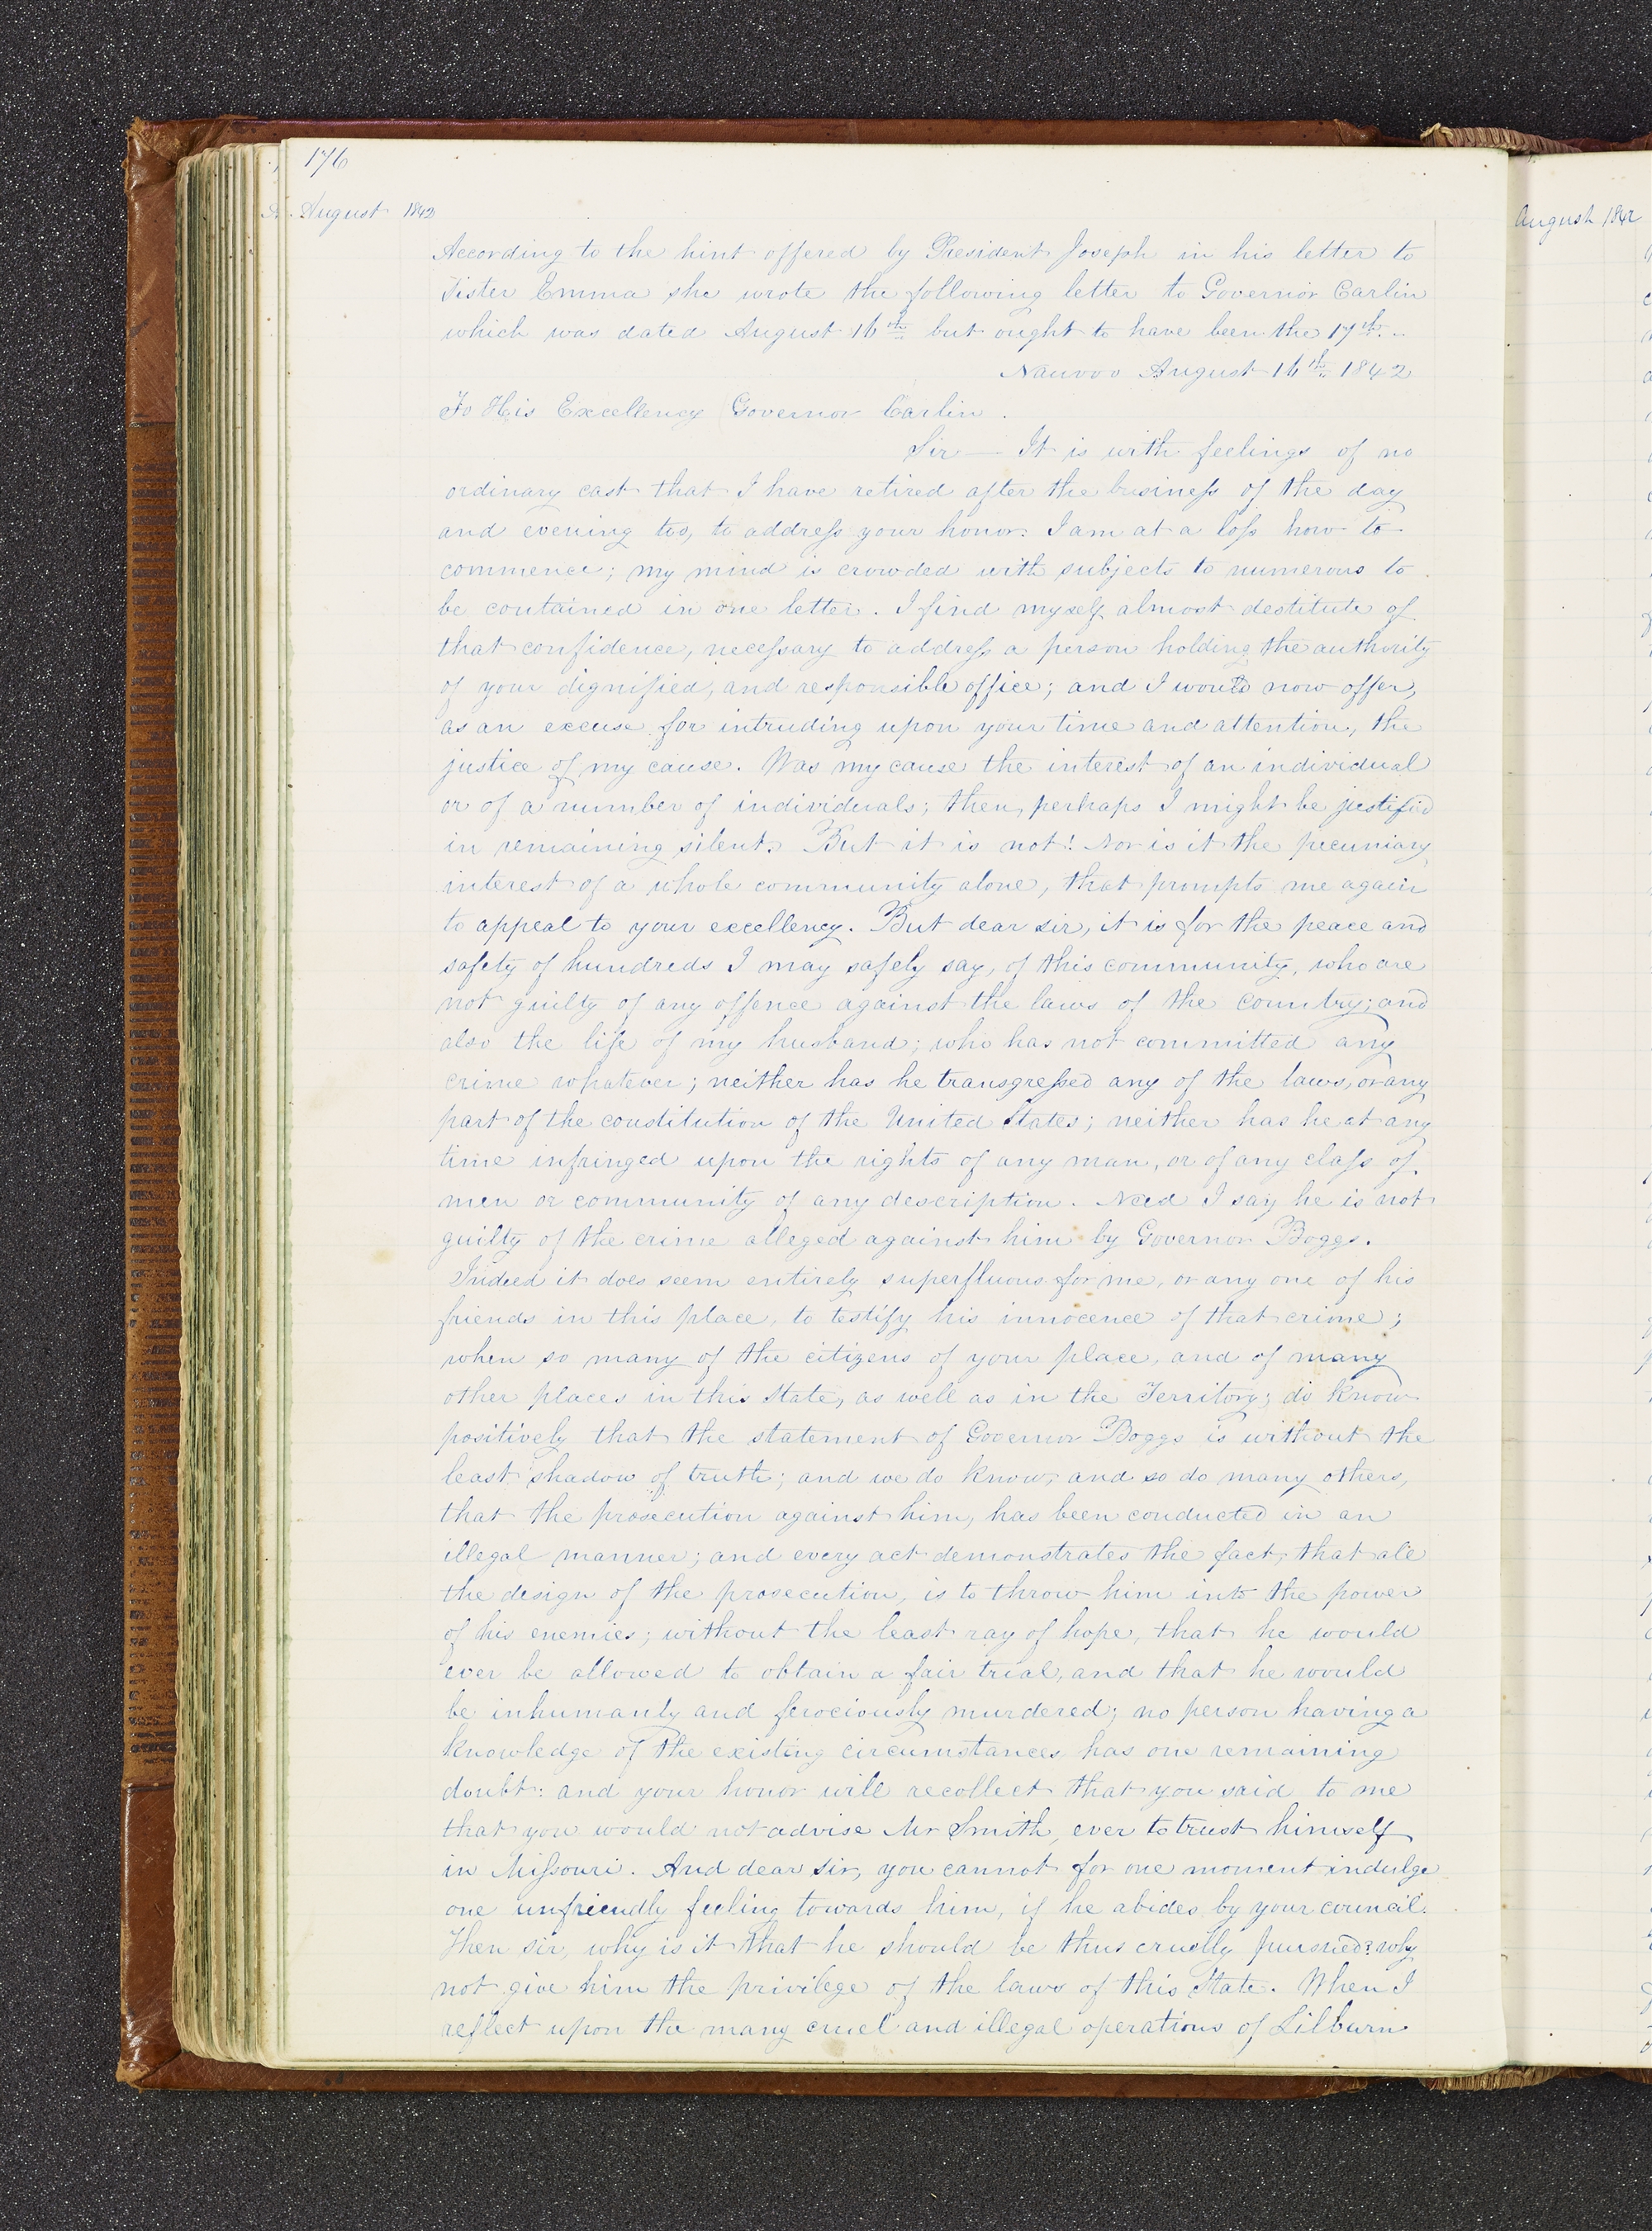 176
August 1842
August 1842
According to the hint offered by President Joseph in his letter to
Sister Emma she wrote the following letter to Governor Carlin
which was dated August 16th but ought to have been the 17th.
Nauvoo August 16th 1842
To His Excellency Governor Carlin.
Sir — It is with feelings of no
ordinary cast that I have retired after the business of the day
and evening too, to address your honor. I am at a loss how to
commence; my mind is crowded with subjects to numerous to
be contained in one letter. I find myself almost destitute of
that confidence, necessary to address a person holding the authority
of your dignified, and responsible office; and I would now offer,
as an excuse for intruding upon your time and attention, the
justice of my cause. Was my cause the interest of an individual
or of a number of individuals; then, perhaps I might be justified
in remaining silent. But it is not! Nor is it the pecuniary
interest of a whole community alone, that prompts me again
to appeal to your excellency. But dear sir, it is for the peace and
safety of hundreds I may safely say, of this community, who are
not guilty of any offence against the laws of the country; and
also the life of my husband; who has not committed any
crime whatever; neither has he transgressed any of the laws, or any
part of the constitution of the United States; neither has he at any
time infringed upon the rights of any man, or of any class of
men or community of any description. Need I say he is not
guilty of the crime alleged against him by Governor Boggs.
Indeed it does seem entirely superfluous for me, or any one of his
friends in this place, to testify his innocence of that crime;
when so many of the citizens of your place, and of many
other places in this State, as well as in the Territory; do know
positively that the statement of Governor Boggs is without the
least shadow of truth; and we do know, and so do many others,
that the prosecution against him, has been conducted in an
illegal manner; and every act demonstrates the fact, that all
the design of the prosecution, is to throw him into the power
of his enemies; without the least ray of hope, that he would
ever be allowed to obtain a fair trial, and that he would
be inhumanly and ferociously murdered; no person having a
knowledge of the existing circumstances has one remaining
doubt: and your honor will recollect that you said to me
that you would not advise Mr Smith, ever to trust himself
in Missouri. And dear sir, you cannot for one moment indulge
one unfriendly feeling towards him, if he abides by your council.
Then sir, why is it that he should be thus cruelly pursued? why
not give him the privilege of the laws of this State. When I
reflect upon the many cruel and illegal operations of Lilburn